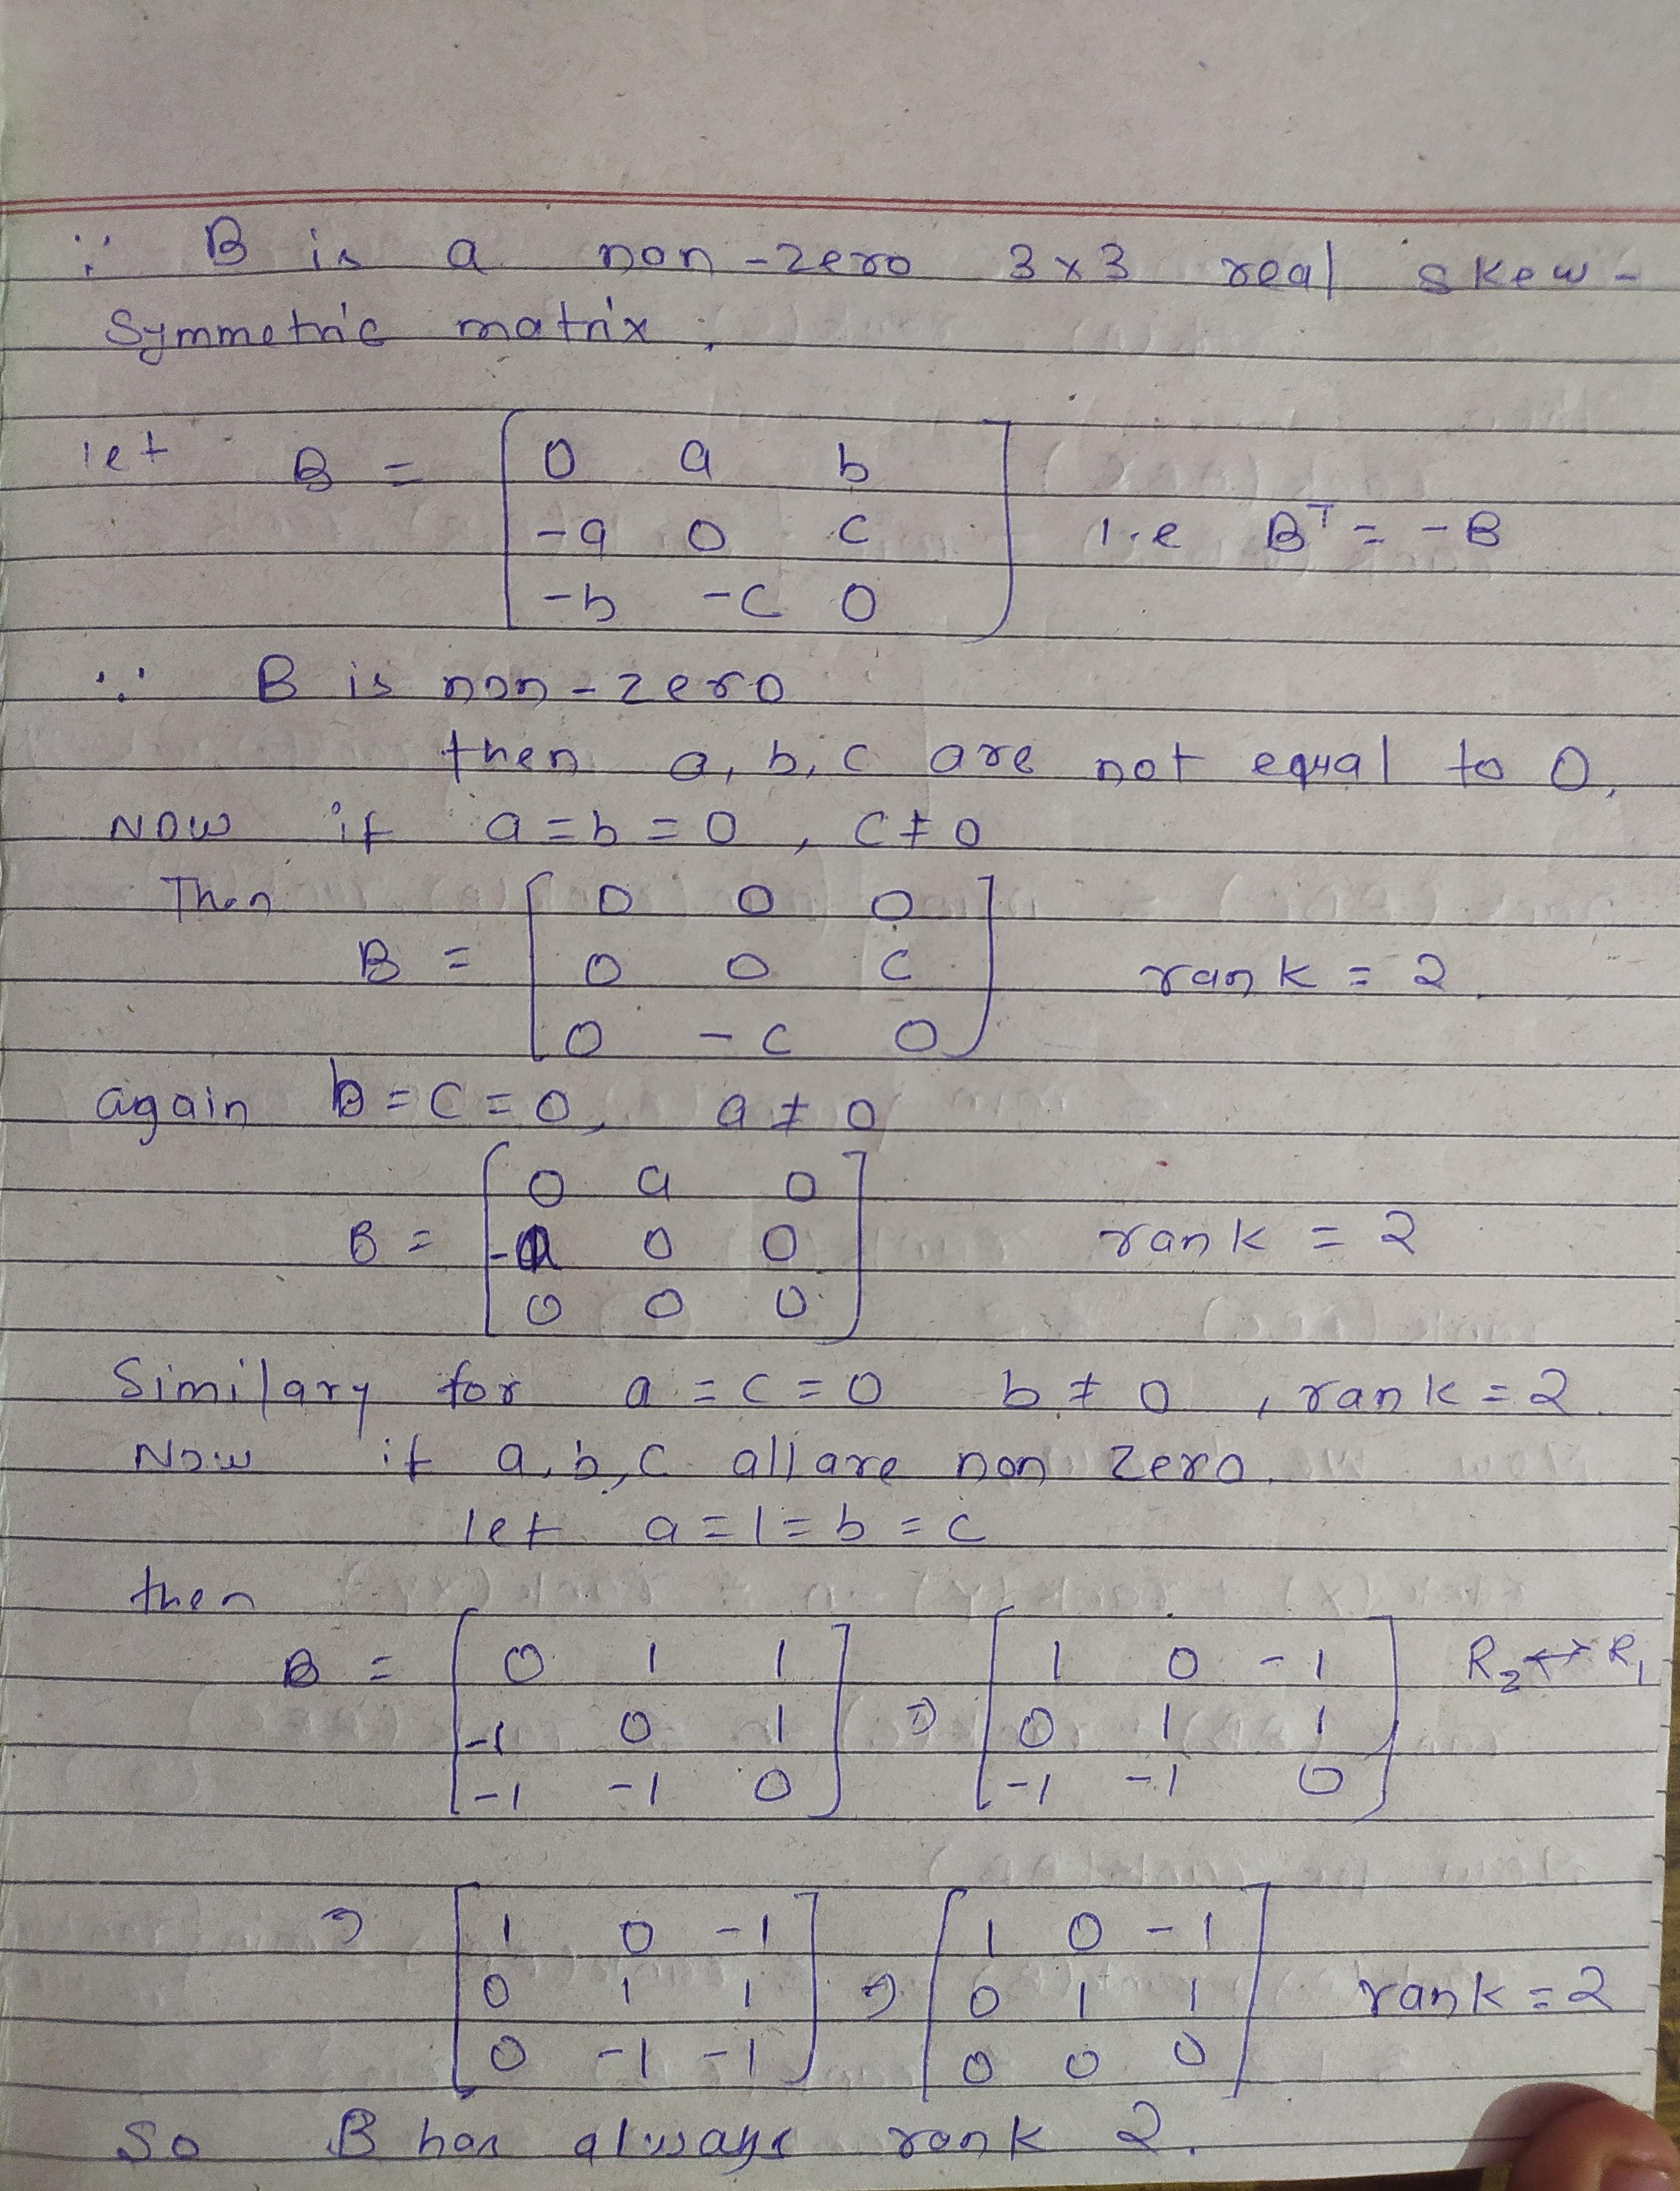 ∵ B is a non-zero 3×3 real skew-
Symmetric matrix;
let B = [ 0 a b
-a 0 c
-b -c 0 ] i.e B^T = -B
∵ B is non-zero
then a, b, c are not equal to 0.
Now if a=b=0, c≠0
Then B = [ 0 0 0
0 0 c
0 -c 0 ] rank = 2.
again b=c=0, a≠0
B = [ 0 a 0
-a 0 0
0 0 0 ] rank = 2
Similary for a=c=0 b≠0, rank=2.
Now if a,b,c all are non zero.
let a=1=b=c
then
B = [ 0 1 1
-1 0 1
-1 -1 0 ] ⇒ [ 1 0 -1
0 1 1
-1 -1 0 ] R2↔R1
⇒ [ 1 0 -1
0 1 1
0 -1 -1 ] ⇒ [ 1 0 -1
0 1 1
0 0 0 ] rank=2
So B has always rank 2.